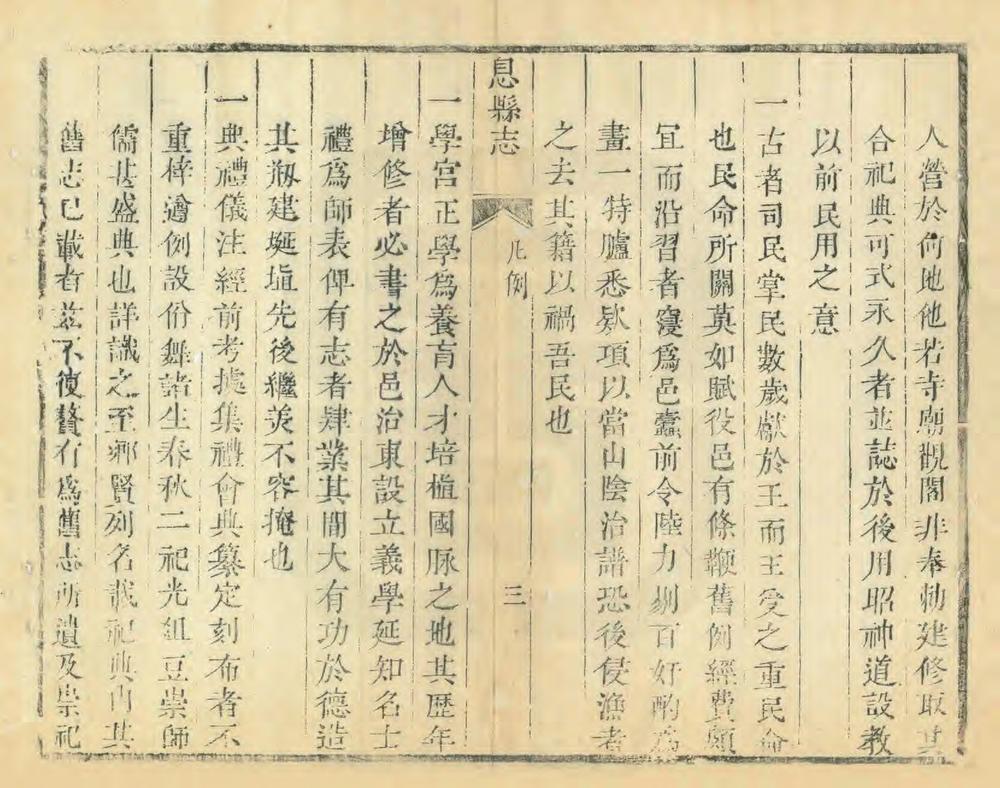 人營於何地他若寺廟觀閣非奉勅建修取其
合祀典可式永久者並誌於後用昭神道設教
以前民用之意
一古者司民掌民數歲獻於王而王受之重民命
也民命所關莫如賦役邑有條鞭舊例經費頗
冝而沿習者窶爲邑蠹前令陸力剔百奸酌爲
畫一特臚悉欵項以當山陰治譜恐後侵漁者
之去其籍以禍吾民也
息縣志
凡例
三
一學宫正學爲養育人才培植國脉之地其歴年
增修者必書之於邑治東設立義學延知名士
禮爲師表俾有志者肄業其間大有功於德造
其剏建埏埴先後繼美不容掩也
一典禮儀注經前考據集禮會典纂定刻布者不
重梓遵例設佾舞諸生春秋二祀光俎豆崇師
儒甚盛典也詳識之至鄉賢列名載祀典内其
舊志已載者兹不復贅有爲舊志所遺及崇祀